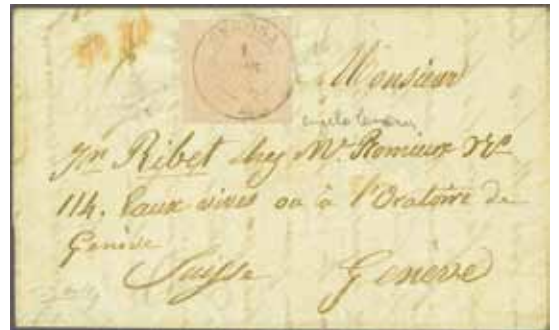 Monsieur
Jn Ribet chez Mr. Romieux No
114. Eaux-vives ou à l'Oratoire de
Genève
Suisse Genève